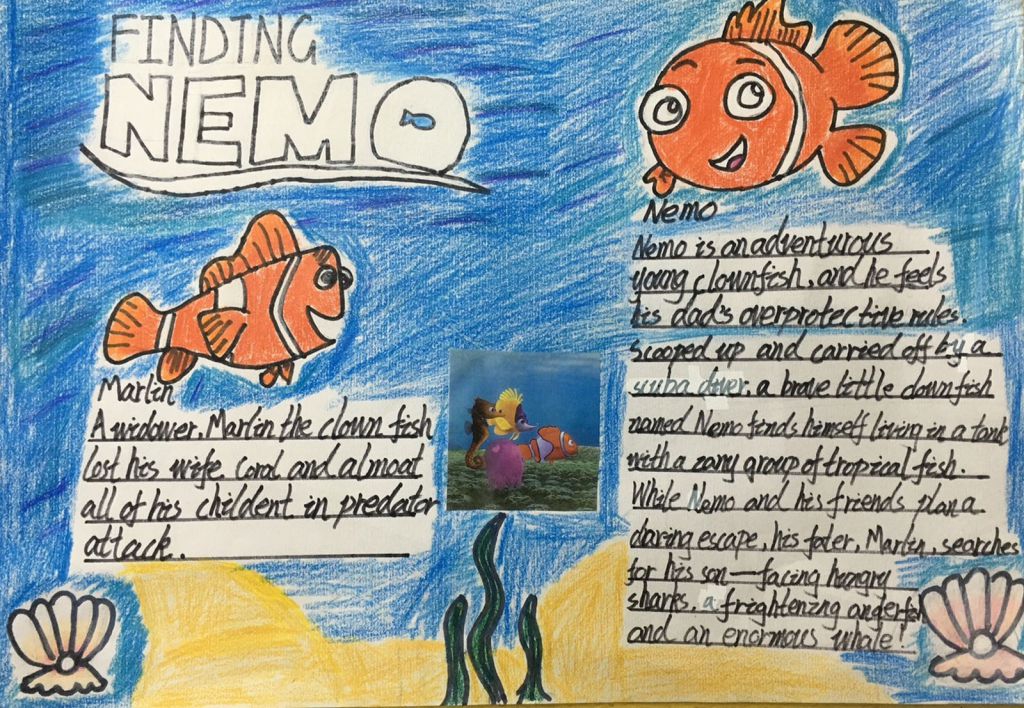 FINDING
NEMO
Nemo
Nemo is an adventurous
young clownfish, and he feels
his dad's overprotective rules.
Scooped up and carried off by a
scuba diver, a brave little clownfish
named Nemo finds himself living in a tank
with a zany group of tropical fish.
While Nemo and his friends plan a
daring escape, his fater, Marlin, searches
for his son—facing hangry
sharks, a frightening angerfish
and an enormous whale!
Marlin
A widower, Marlin the clown fish
lost his wife Coral and almoat
all of his childent in predator
attack.